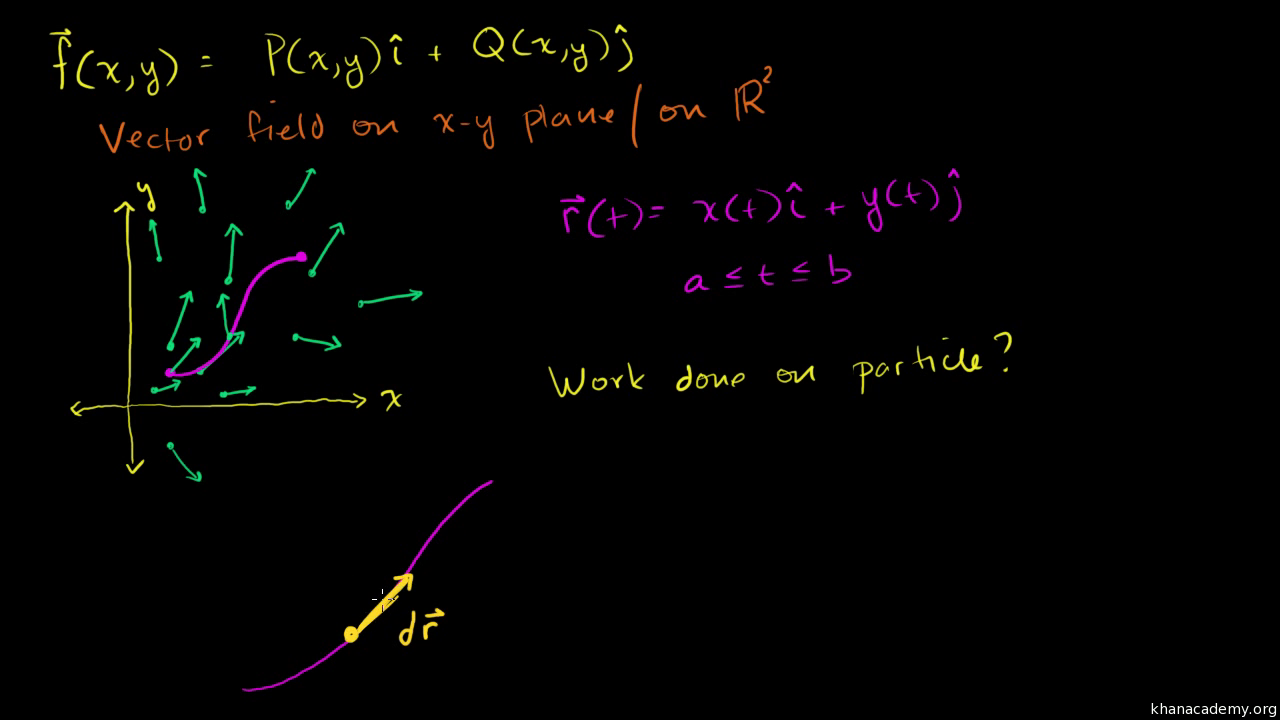 f⃗(x,y) = P(x,y)î + Q(x,y)ĵ
Vector field on x-y plane / on ℝ²
y
r⃗(t) = x(t)î + y(t)ĵ
a ≤ t ≤ b
Work done on particle?
x
dr⃗
khanacademy.org